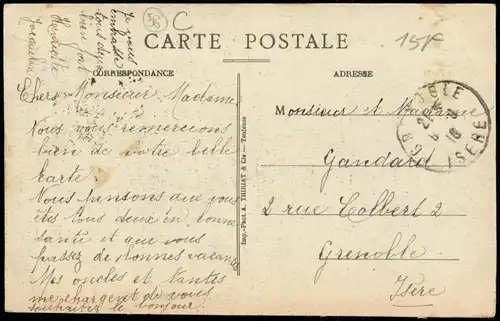 Je vous
embrasse
tous deux
bien fort
Henriette
C
15F
CARTE POSTALE
CORRESPONDANCE
ADRESSE
Chers Monsieur Madame
Nous vous remercions
bien de votre belle
karte.
Nous pensons que vous
êtes tous deux en bonne
santé et que vous
passez de bonnes vacances
Mes oncles et Tantes
me chargent de vous
souhaiter le bonjour.
Imp.-Phot. A. THIRIAT & Cie - Toulouse
Monsieur et Madame
Gandard
2 rue Colbert 2
Grenoble
Isère
ISERE